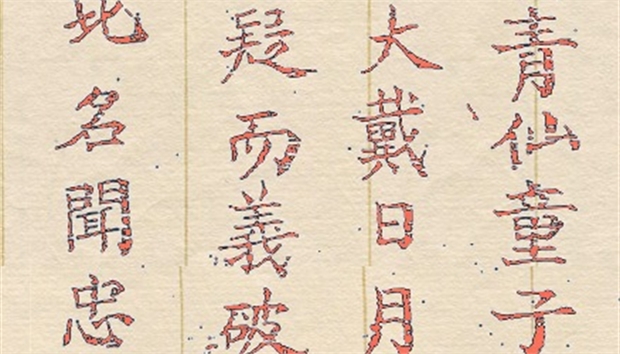 青仙童子
大戴日月
疑而義破
此名聞忠